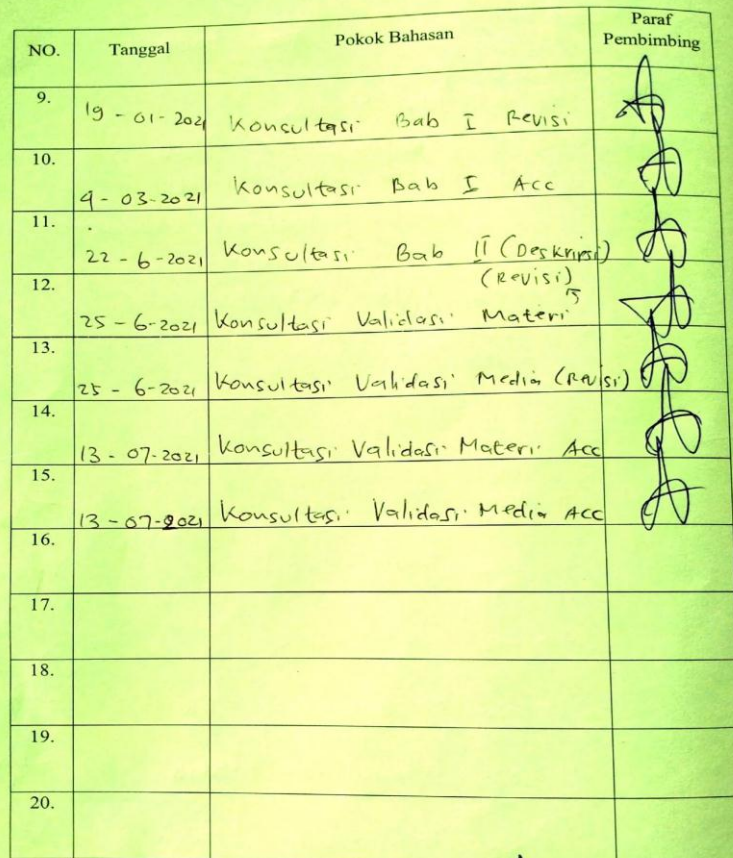 NO. Tanggal Pokok Bahasan Paraf Pembimbing
9. 19 - 01 - 2021 Konsultasi Bab I Revisi
10. 4 - 03 - 2021 Konsultasi Bab I Acc
11. 22 - 6 - 2021 Konsultasi Bab II (Deskripsi)
(Revisi)
12. 25 - 6 - 2021 Konsultasi Validasi Materi
13. 25 - 6 - 2021 Konsultasi Validasi Media (Revisi)
14. 13 - 07 - 2021 Konsultasi Validasi Materi Acc
15. 13 - 07 - 2021 Konsultasi Validasi Media Acc
16.
17.
18.
19.
20.